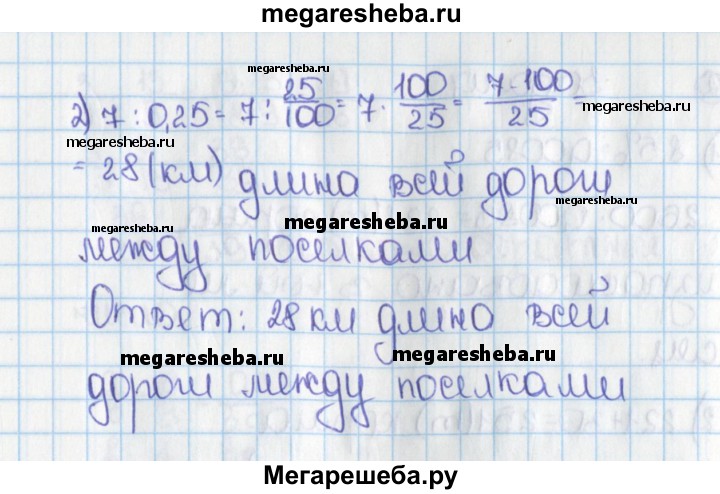 megaresheba.ru
megaresheba.ru
2) 7 : 0,25 = 7 : 25/100 = 7 · 100/25 = 7·100/25 =
megaresheba.ru
megaresheba.ru
= 28 (км) длина всей дороги
megaresheba.ru
megaresheba.ru
megaresheba.ru
между поселками
Ответ: 28 км длина всей
megaresheba.ru
megaresheba.ru
дороги между поселками
Мегарешеба.ру